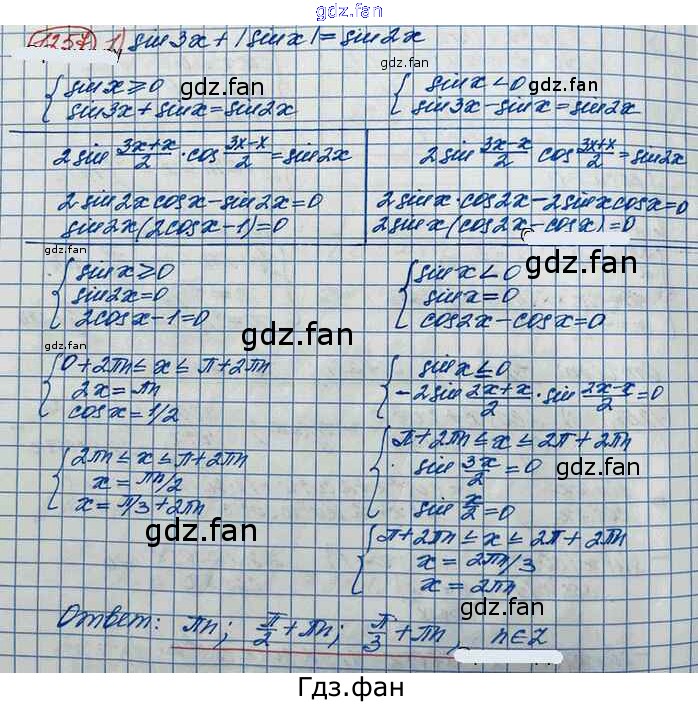 gdz.fan
1257 1) sin3x+|sinx|=sin2x
{ sinx≥0
sin3x+sinx=sin2x
gdz.fan
{ sinx<0
sin3x-sinx=sin2x
gdz.fan
2sin (3x+x)/2 · cos (3x-x)/2 = sin2x
2sin2xcosx-sin2x=0
sin2x(2cosx-1)=0
2sin (3x-x)/2 cos (3x+x)/2 = sin2x
2sinx·cos2x-2sinxcosx=0
2sinx(cos2x-cosx)=0
gdz.fan
{ sinx≥0
sin2x=0
2cosx-1=0
gdz.fan
{ sinx<0
sinx=0
cos2x-cosx=0
gdz.fan
gdz.fan
gdz.fan
{ 0+2πn≤x≤π+2πn
2x=πn
cosx=1/2
{ sinx≤0
-2sin (2x+x)/2 · sin (2x-x)/2 =0
gdz.fan
{ 2πn≤x≤π+2πn
x=πn/2
x=π/3+2πn
gdz.fan
{ π+2πn≤x≤2π+2πn
sin 3x/2 =0
sin x/2 =0
gdz.fan
{ π+2πn≤x≤2π+2πn
x=2πn/3
x=2πn
gdz.fan
Ответ: πn; π/2+πn; π/3+πn, n∈Z
Гдз.фан